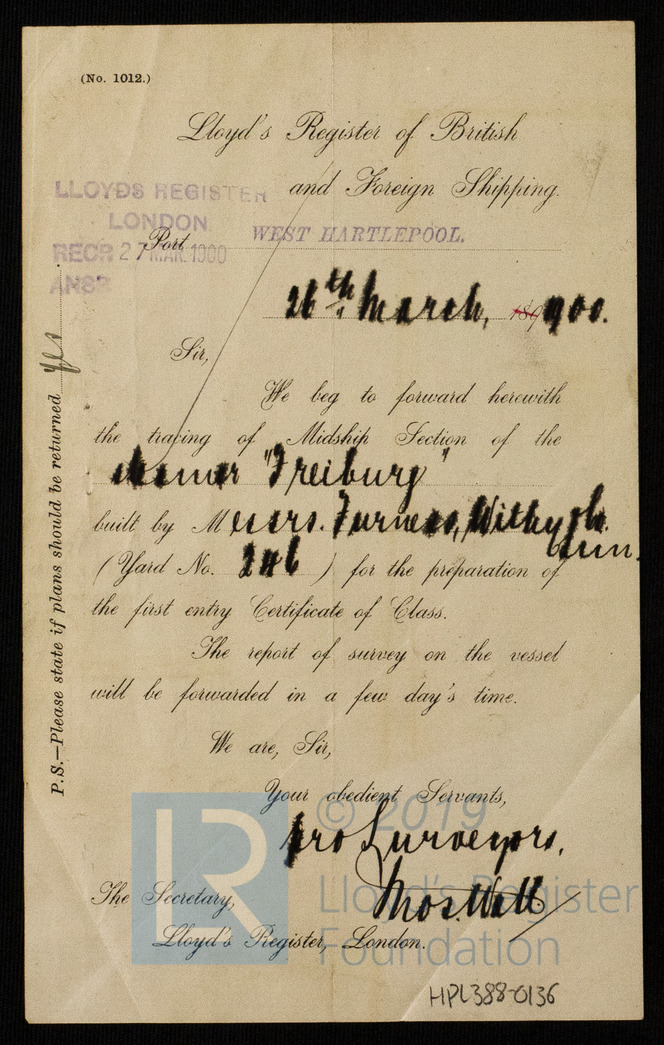 (No. 1012.)
Lloyd's Register of British
and Foreign Shipping.
LLOYDS REGISTER
LONDON
RECD 27 MAR. 1900
ANSD
Port WEST HARTLEPOOL.
26th March, 1900.
Sir,
We beg to forward herewith
the tracing of Midship Section of the
steamer "Freiburg"
built by Messrs. Furness, Withy & Co.
(Yard No. 246) for the preparation of
the first entry Certificate of Class.
The report of survey on the vessel
will be forwarded in a few day's time.
We are, Sir,
Your obedient Servants,
pro Surveyors,
The Secretary,
Lloyd's Register, London.
P.S.—Please state if plans should be returned yes
HPL388-0136
LR
© 2019
Lloyd's Register
Foundation